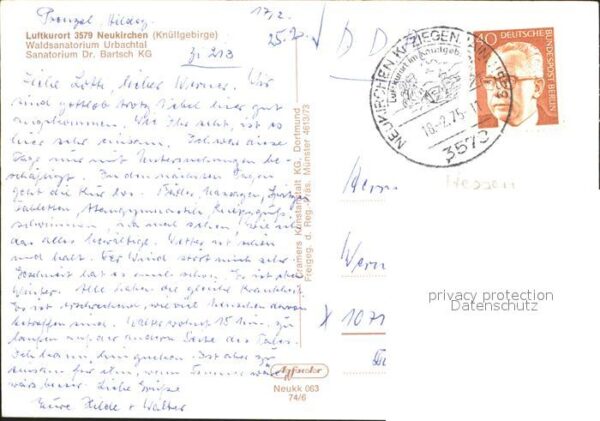 17.2.
Luftkurort 3579 Neukirchen (Knüllgebirge)
Waldsanatorium Urbachtal
Sanatorium Dr. Bartsch KG
Zi 213
25.2.
Liebe Lotte, lieber Werner. Wir
sind gottlob trotz Nebel hier gut
angekommen. Wie Ihr seht, ist es
hier sehr einsam. Ich war diese
Tage nur mit Untersuchungen be-
schäftigt. In den nächsten Tagen
geht die Kur los. Bäder, Massagen,
tabletten, Atemgymnastik,
schwimmen, na mal sehen, wie ich
das alles bewältige. Wetter ist schön
und kalt. Der Wind stört mich sehr
es ist eben
Winter. Alle haben die gleiche Krankheit.
Es ist erschreckend, wieviel Menschen davon
betroffen sind. Walter wohnt 15 Min. zu
laufen auf der anderen Seite des Tales.
Ich kann hingehen. Ist aber zu
einsam für ihn, wenn Sonne wäre
wär's besser. Liebe Grüße
Eure Hilde + Walter
Cramers Kunstanstalt KG, Dortmund
Freigeg. d. Reg. Präs. Münster 4613/73
Neukk 063
74/6
D D
NEUKIRCHEN Kr ZIEGENHAIN
Luftkurort im Knüllgebirge
18.-2.75-17
3579
40 DEUTSCHE
BUNDESPOST BERLIN
Hessen
Herrn
Wern
X 1071
privacy protection
Datenschutz